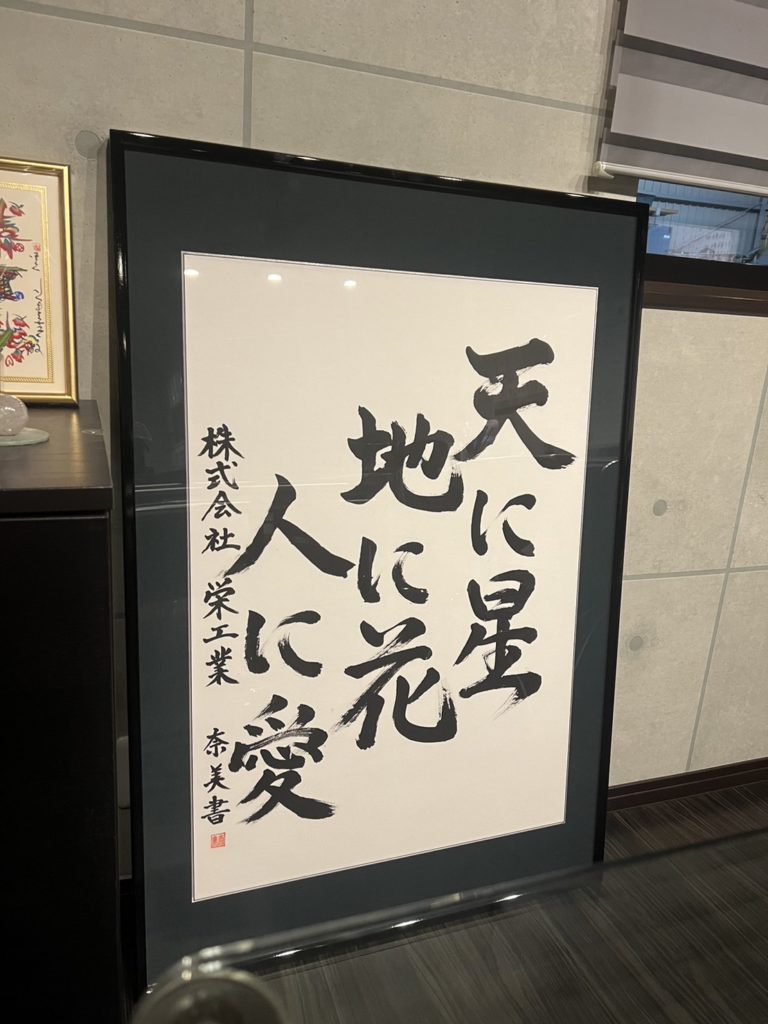 天に星
地に花
人に愛
株式会社 栄工業 奈美書